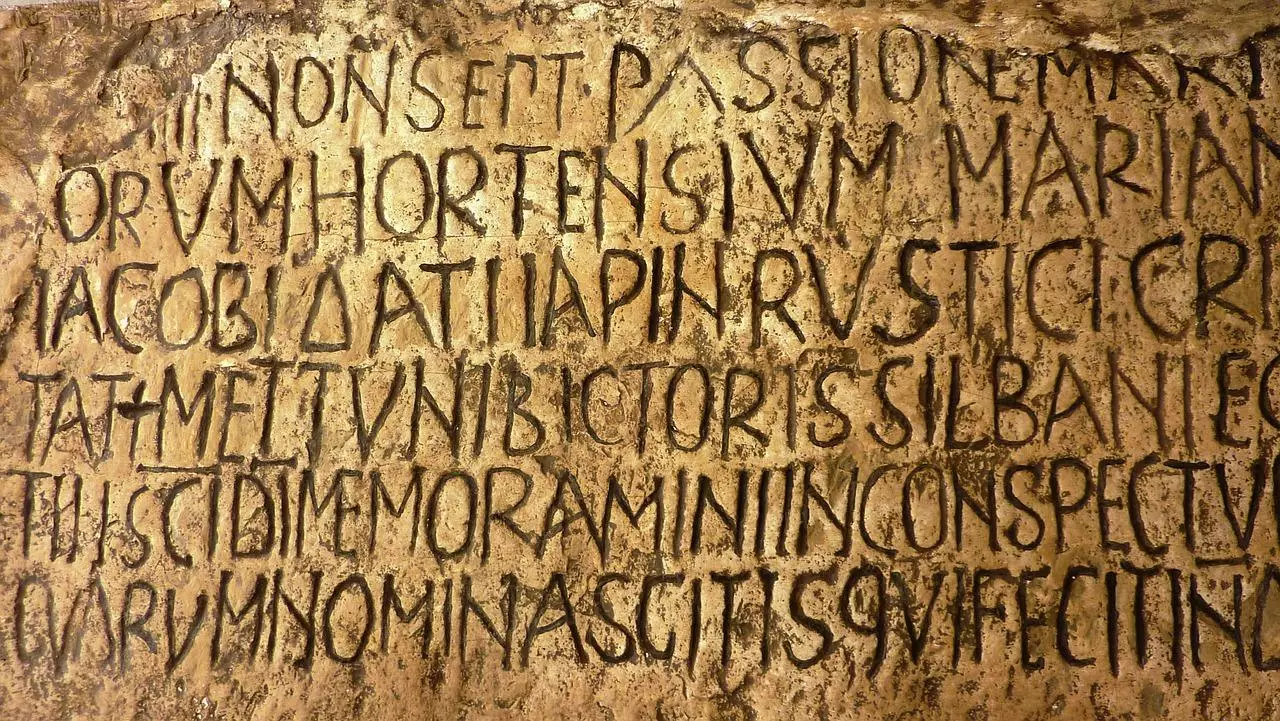 IIII NON SEPT PASSIONE MART
ORVM HORTENSIVM MARIAN
IACOBI DATI IAPIN RVSTICI CRI
TATI METTVNI BICTORIS SILBANI EG
TII SCI DI MEMORAMINI IN CONSPECTV
QVARVM NOMINA SCITIS QVI FECIT IN